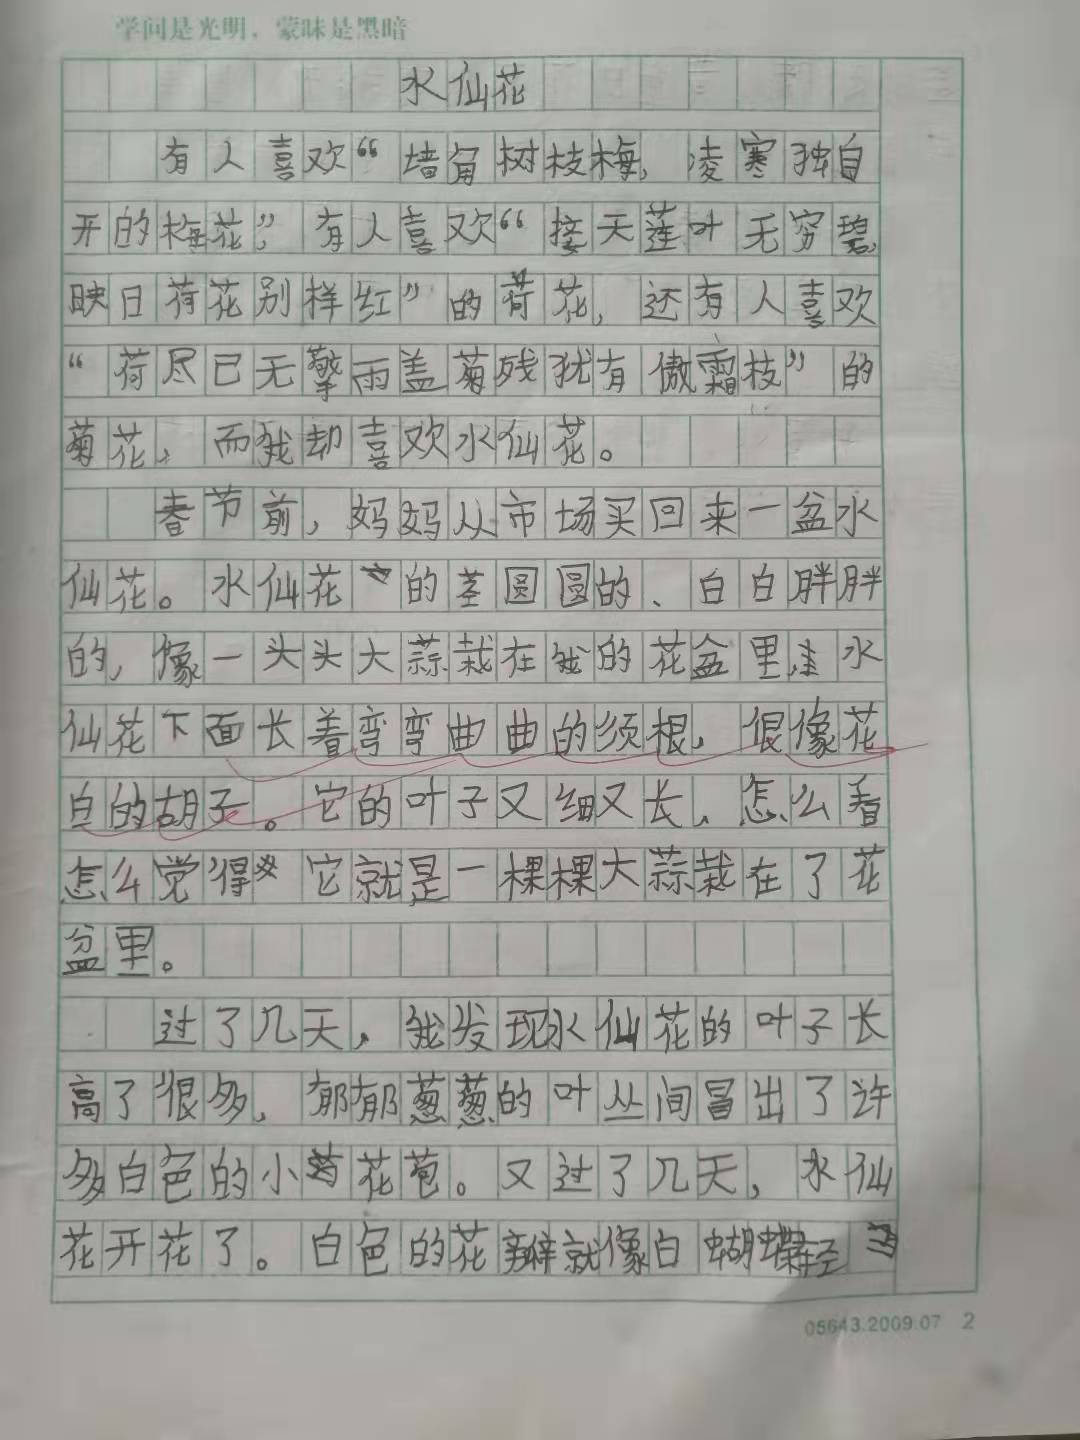 学问是光明，蒙昧是黑暗
水仙花
有人喜欢“墙角树枝梅，凌寒独自
开的梅花”，有人喜欢“接天莲叶无穷碧，
映日荷花别样红”的荷花，还有人喜欢
“荷尽已无擎雨盖菊残犹有傲霜枝”的
菊花，而我却喜欢水仙花。
春节前，妈妈从市场买回来一盆水
仙花。水仙花的茎圆圆的、白白胖胖
的，像一头头大蒜栽在我的花盆里，水
仙花下面长着弯弯曲曲的须根，很像花
白的胡子。它的叶子又细又长，怎么看
怎么觉得它就是一棵棵大蒜栽在了花
盆里。
过了几天，我发现水仙花的叶子长
高了很多，郁郁葱葱的叶丛间冒出了许
多白色的小花苞。又过了几天，水仙
花开花了。白色的花瓣就像白蝴蝶轻
05643.2009.07 2